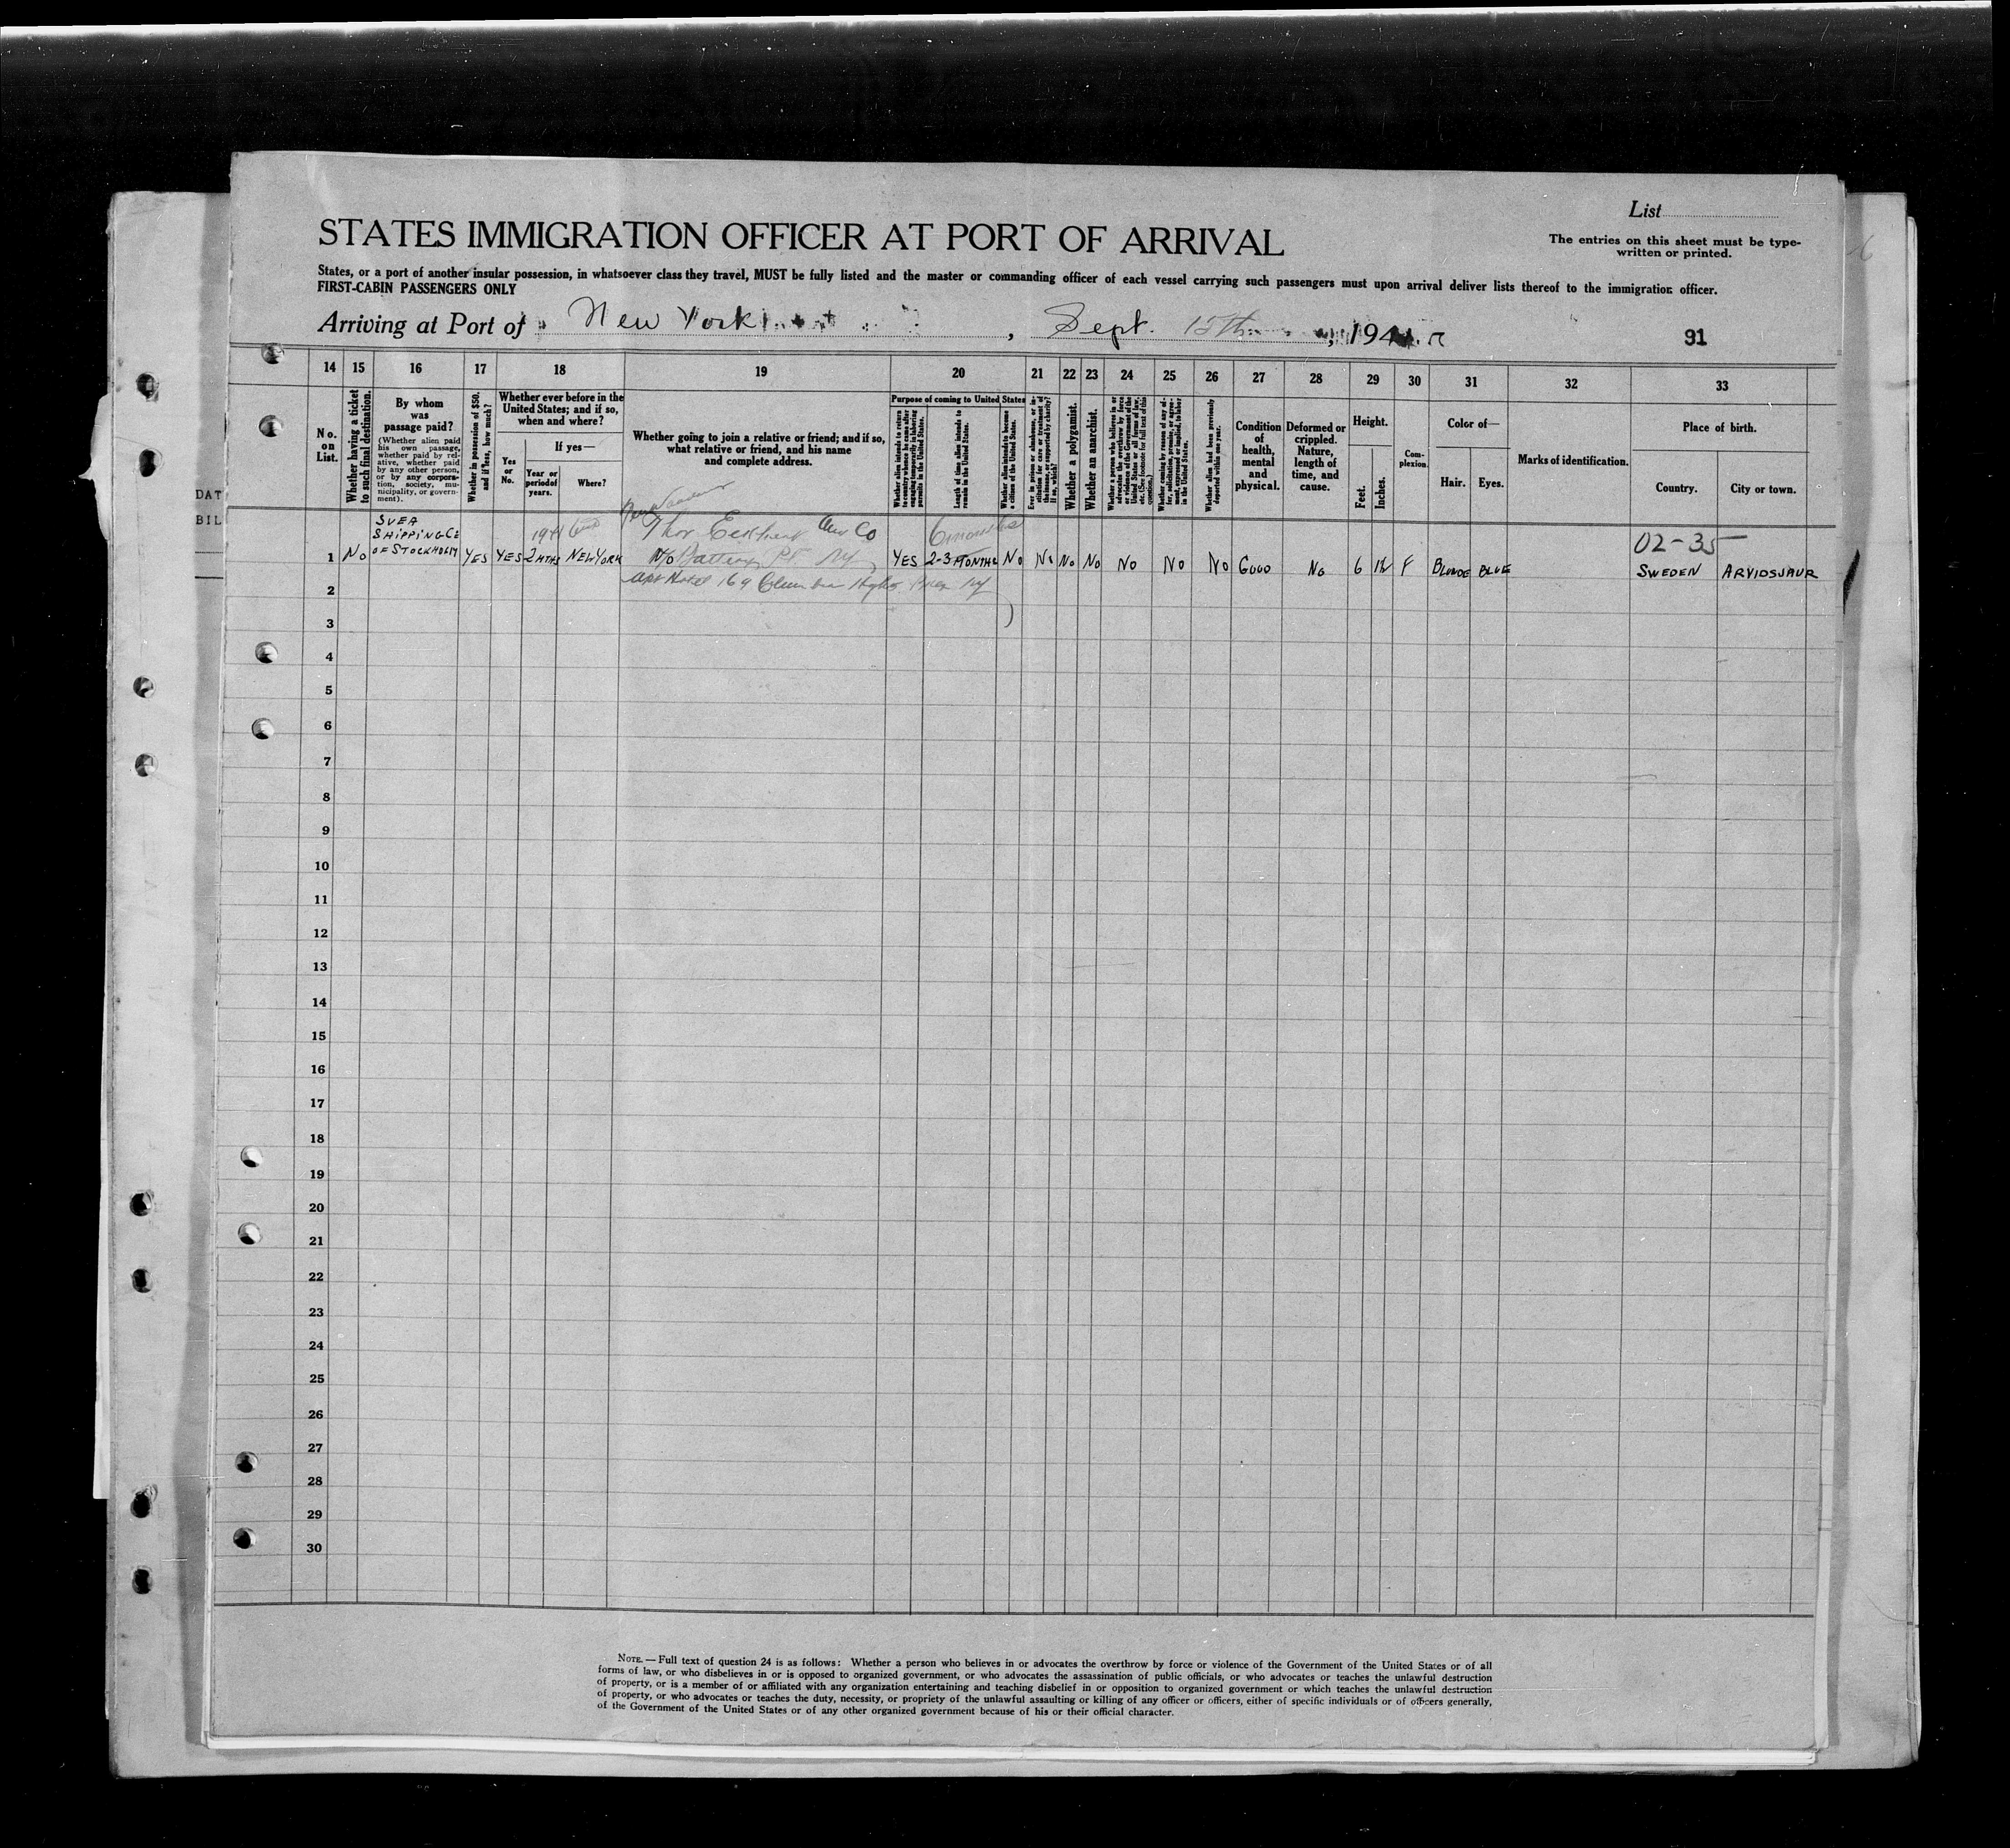 List
STATES IMMIGRATION OFFICER AT PORT OF ARRIVAL
The entries on this sheet must be type-
written or printed.
States, or a port of another insular possession, in whatsoever class they travel, MUST be fully listed and the master or commanding officer of each vessel carrying such passengers must upon arrival deliver lists thereof to the immigration officer.
FIRST-CABIN PASSENGERS ONLY
Arriving at Port of New York, Sept. 15th, 194
91
14 15 16 17 18 19 20 21 22 23 24 25 26 27 28 29 30 31 32 33
No. on List.
Whether having a ticket to such final destination.
By whom was passage paid?
(Whether alien paid his own passage, whether paid by relative, whether paid by any other person, or by any corporation, society, municipality, or government).
Whether in possession of $50, and if less, how much?
Whether ever before in the United States; and if so, when and where?
Yes or No.
If yes—
Year or period of years.
Where?
Whether going to join a relative or friend; and if so, what relative or friend, and his name and complete address.
Purpose of coming to United States
Whether alien intends to return to country whence he came after engaging temporarily in laboring pursuits in the United States.
Length of time alien intends to remain in the United States.
Whether alien intends to become a citizen of the United States.
Ever in prison or almshouse, or institution for care or treatment of the insane, or supported by charity? If so, which?
Whether a polygamist.
Whether an anarchist.
Whether coming by reason of any offer, solicitation, promise, or agreement, expressed or implied, to labor in the United States.
Whether alien had been previously deported within one year.
Condition of health, mental and physical.
Deformed or crippled. Nature, length of time, and cause.
Height.
Feet.
Inches.
Complexion.
Color of—
Hair.
Eyes.
Marks of identification.
Place of birth.
Country.
City or town.
DAT
BIL
SVEA
SHIPPING Co
OF STOCKHOLM
1941
Thor Co
6 months
02-35
1 No YES YES 2 MTHS NEW YORK Battery Pl NY YES 2-3 MONTHS No No No No No No No GOOD No 6 F BLONDE BLUE SWEDEN ARVIDSJAUR
Hotel 169 Columbia Hghts NY
2
3
4
5
6
7
8
9
10
11
12
13
14
15
16
17
18
19
20
21
22
23
24
25
26
27
28
29
30
NOTE.—Full text of question 24 is as follows: Whether a person who believes in or advocates the overthrow by force or violence of the Government of the United States or of all
forms of law, or who disbelieves in or is opposed to organized government, or who advocates the assassination of public officials, or who advocates or teaches the unlawful destruction
of property, or is a member of or affiliated with any organization entertaining and teaching disbelief in or opposition to organized government or which teaches the unlawful destruction
of property, or who advocates or teaches the duty, necessity, or propriety of the unlawful assaulting or killing of any officer or officers, either of specific individuals or of officers generally,
of the Government of the United States or of any other organized government because of his or their official character.